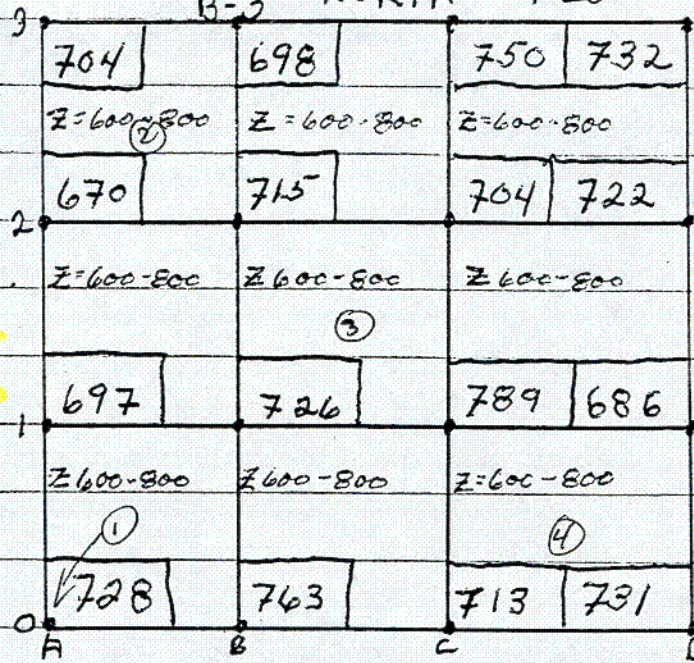 3
704 698 750 732
Z=600-800 Z=600-800 Z=600-800
2
670 715 704 722
2
Z=600-800 Z 600-800 Z 600-800
3
697 726 789 686
1
Z 600-800 Z 600-800 Z=600-800
1
4
728 763 713 731
0
A B C